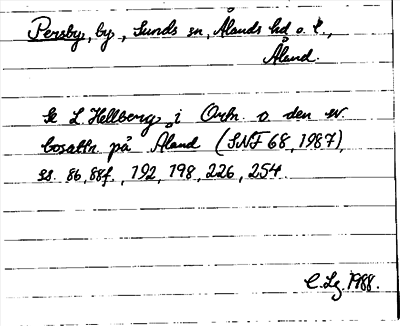 Persby, by, Sunds sn, Ålands hd o. l.,
Åland.
Se L Hellberg, i Ortn o. den sv.
bosättn på Åland (SNF 68, 1987),
ss. 86, 88f., 192, 198, 226, 254.
C. Lg. 1988.